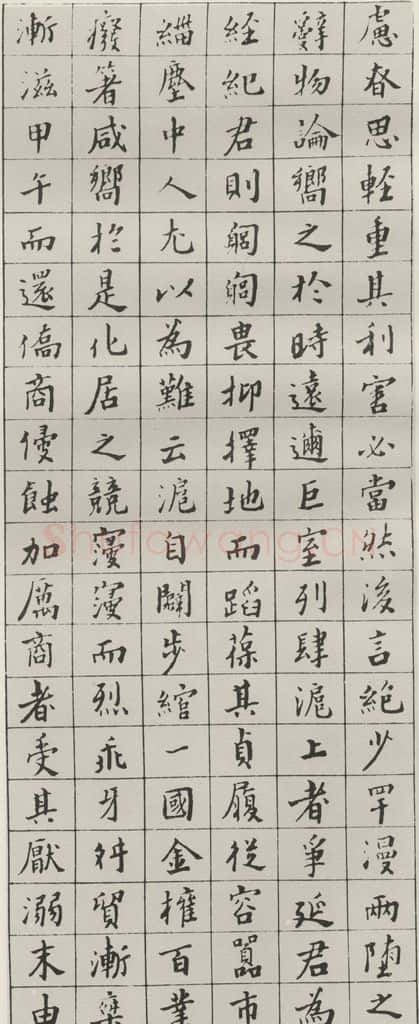 慮昚思輕重其利害必當然後言絕少罕漫兩堕之
辭物論嚮之於時遠邇巨室列肆滬上者爭延君為
經紀君則匑匑畏抑擇地而蹈葆其貞履從容囂市
緇塵中人尤以為難云滬自闢步綰一國金榷百業
癈箸咸嚮於是化居之競寖寖而烈乖牙舛貿漸棄
漸滋甲午而還僑商侵蝕加厲商者受其厭溺末由